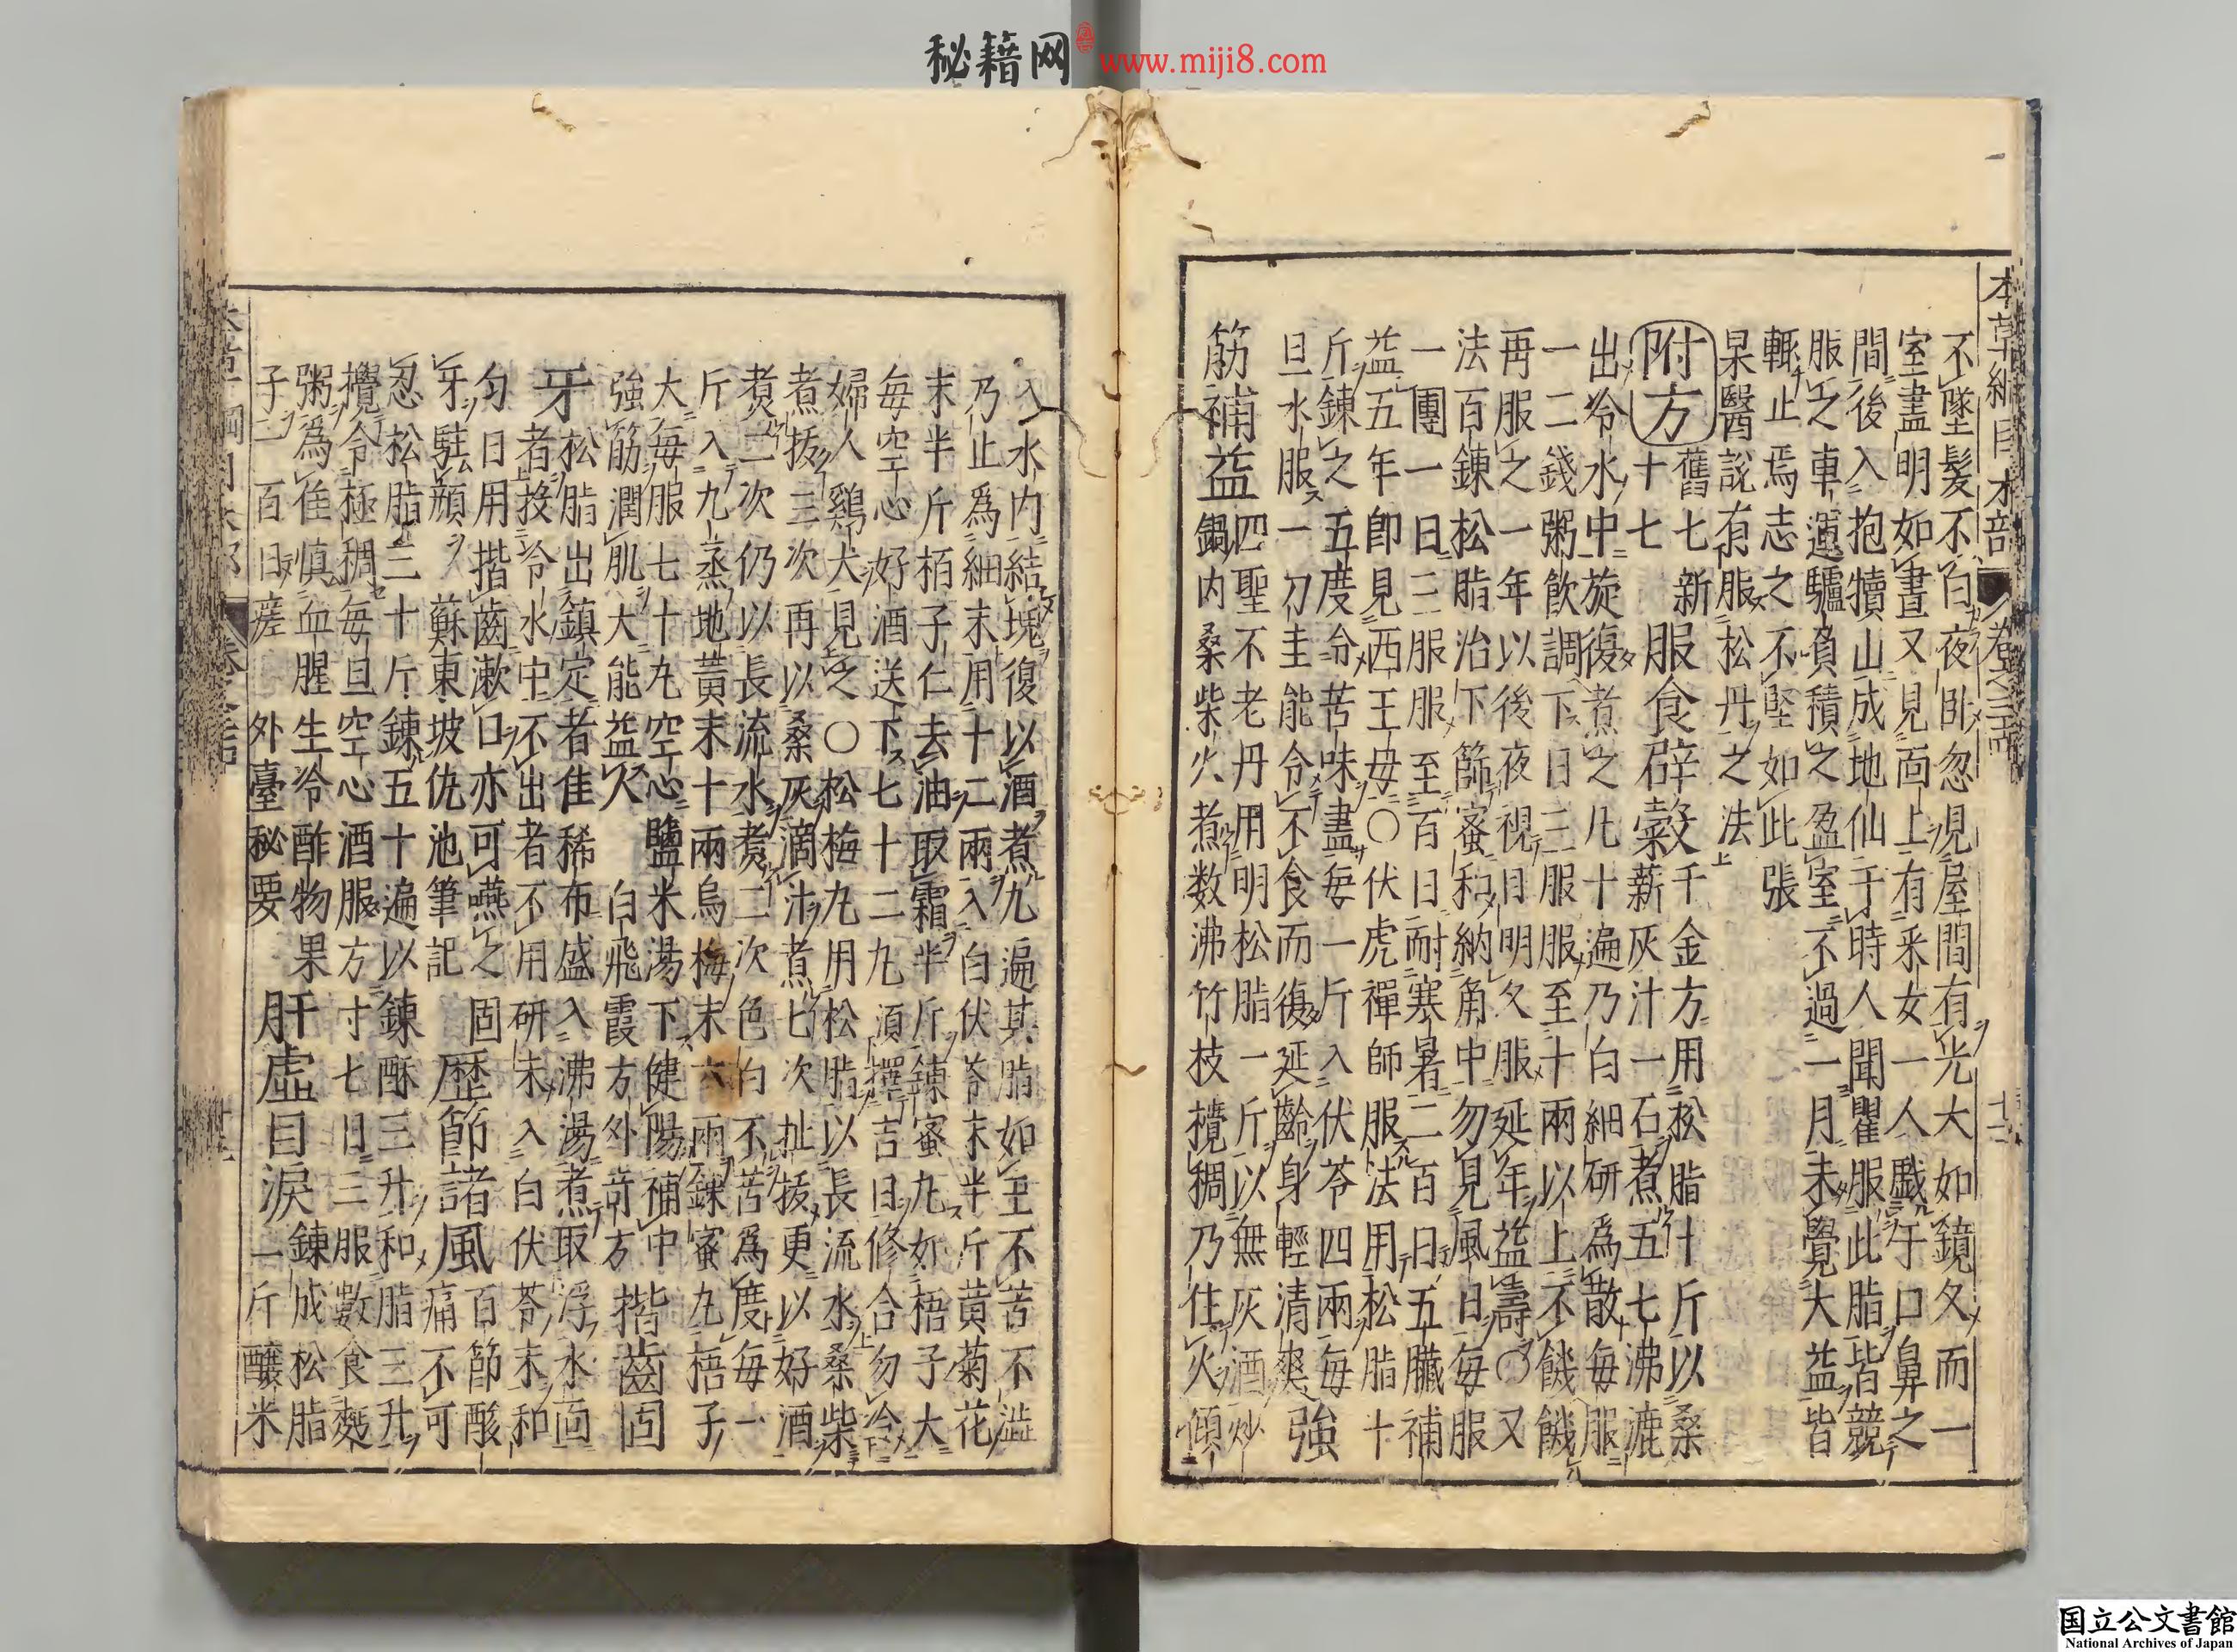 秘籍网 www.miji8.com
本草綱目木部 卷之三十四
不墜髮不白夜卧忽見屋間有光大如鏡久而一
室盡明如晝又見面上有采女一人戲于口鼻之
間後入抱犢山成地仙于時人聞瞿服此脂皆競
服之車運驢負積之盈室不過一月未覺大益皆
輒止焉志之不堅如此張
杲醫說有服松丹之法
附方 舊七新十七 服食辟穀 千金方用松脂十斤以桑薪灰汁一石煮五七沸漉
出冷水中旋復煮之凡十遍乃白細研爲散每服
一二錢粥飲調下日三服服至十兩以上不饑饑
再服之一年以後夜視目明久服延年益壽〇又
法百錬松脂治下篩蜜和納角中勿見風日每服
一團一日三服服至百日耐寒暑二百日五臟補
益五年即見西王母〇伏虎禪師服法用松脂十
斤錬之五度令苦味盡每一斤入伏苓四兩每
旦水服一刀圭能令不食而復延齡身輕清爽 強
筋補益 四聖不老丹用明松脂一斤以無灰酒炒
鍋内桑柴火煮数沸竹枝攪稠乃住火傾
入水内結塊復以酒煮九遍其脂如玉不苦不澁
乃止爲細末用十二兩入白伏苓末半斤黄菊花
末半斤栢子仁去油取霜半斤錬蜜丸如梧子大
每空心好酒送下七十二丸須擇吉日修合勿令
婦人鷄犬見之〇松梅丸用松脂以長流水桑柴
煮拔三次再以桑灰滴汁煮七次扯拔更以好酒
煑二次仍以長流水煑二次色白不苦爲度每一
斤入九蒸地黄末十兩烏梅末六兩錬蜜丸梧子
大每服七十丸空心鹽米湯下健陽補中
強筋潤肌大能益人 白飛霞方外奇方 揩齒固
牙 松脂出鎮定者佳稀布盛入沸湯煮取浮水面
者投冷水中不出者不用研末入白伏苓末和
匀日用揩齒漱口亦可嚥之固
牙駐顔 蘇東坡仇池筆記 歷節諸風 百節酸
痛不可
忍松脂三十斤錬五十遍以錬酥三升和脂三升
攪令極稠每旦空心酒服方寸七日三服數食麪
粥爲佳慎血腥生冷酢物果
子一百日瘥 外臺秘要 肝虛目淚 錬成松脂
一斤釀米
国立公文書館
National Archives of Japan